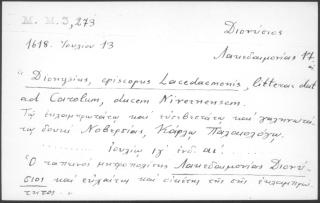 M. M. 3, 273
Διονύσιος
1618. Ἰουλίου 13
Λακεδαιμονίας 17
"Dionysius, episcopus Lacedaemonis, litteras dat
ad Carolum, ducem Nivernensem.
Τῷ ἐκλαμπροτάτῳ καὶ εὐσεβεστάτῳ καὶ γαληνοτά
τῳ δουκὶ Νοβερσίας, Κάρλῳ Παλαιολόγῳ.
..... ἰουλίῳ ιγ ἰνδ. αʹ....
Ὁ ταπεινὸς μητροπολίτης Λακεδαιμονίας Διονύ
σιος καὶ εὐχέτης καὶ οἰκέτης τῆς σῆς ἐκλαμπρό
τητος...